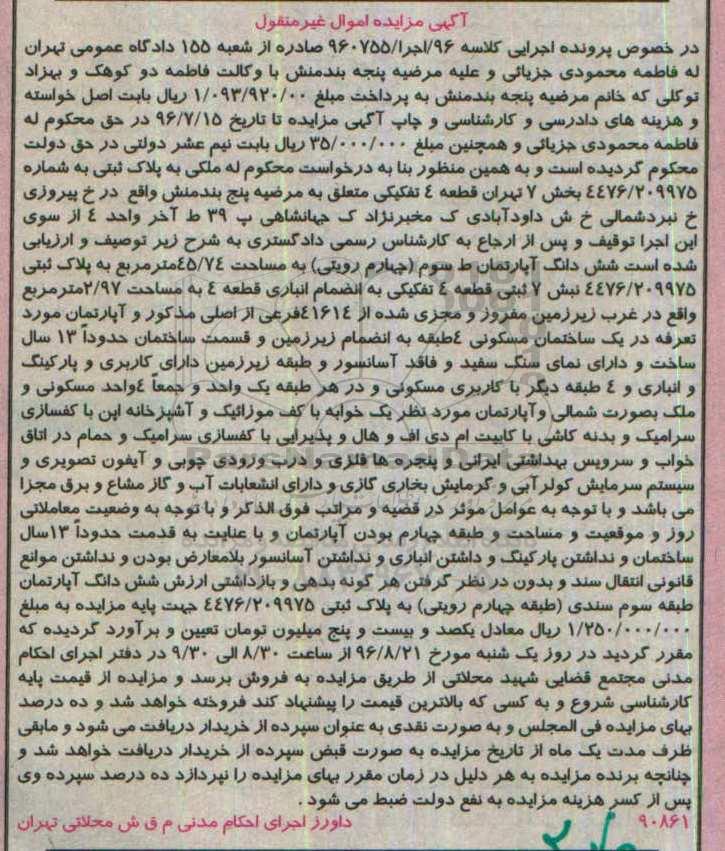 آگهی مزایده اموال غیرمنقول
در خصوص پرونده اجرایی کلاسه ۹۶/اجرا/۹۶۰۷۵۵ صادره از شعبه ۱۵۵ دادگاه عمومی تهران
له فاطمه محمودی جزیائی و علیه مرضیه پنجه بندمنش با وکالت فاطمه دو کوهک و بهزاد
توکلی که خانم مرضیه پنجه بندمنش به پرداخت مبلغ ۱/۰۹۳/۹۲۰/۰۰ ریال بابت اصل خواسته
و هزینه های دادرسی و کارشناسی و چاپ آگهی مزایده تا تاریخ ۹۶/۷/۱۵ در حق محکوم له
فاطمه محمودی جزیائی و همچنین مبلغ ۳۵/۰۰۰/۰۰۰ ریال بابت نیم عشر دولتی در حق دولت
محکوم گردیده است و به همین منظور بنا به درخواست محکوم له ملکی به پلاک ثبتی به شماره
۴٤۷۶/۲۰۹۹۷۵ بخش ۷ تهران قطعه ٤ تفکیکی متعلق به مرضیه پنج بندمنش واقع در خ پیروزی
خ نبردشمالی خ ش داودآبادی ک مخبرنژاد ک جهانشاهی پ ۳۹ ط آخر واحد ٤ از سوی
این اجرا توقیف و پس از ارجاع به کارشناس رسمی دادگستری به شرح زیر توصیف و ارزیابی
شده است شش دانگ آپارتمان ط سوم (چهارم رویتی) به مساحت ٤۵/۷٤مترمربع به پلاک ثبتی
٤٤۷۶/۲۰۹۹۷۵ نبش ۷ ثبتی قطعه ٤ تفکیکی به انضمام انباری قطعه ٤ به مساحت ۲/۹۷مترمربع
واقع در غرب زیرزمین مفروز و مجزی شده از ٤۱۶۱٤فرعی از اصلی مذکور و آپارتمان مورد
تعرفه در یک ساختمان مسکونی ٤طبقه به انضمام زیرزمین و قسمت ساختمان حدوداً ۱۳ سال
ساخت و دارای نمای سنگ سفید و فاقد آسانسور و طبقه زیرزمین دارای کاربری و پارکینگ
و انباری و ٤ طبقه دیگر با کاربری مسکونی و در هر طبقه یک واحد و جمعا ٤واحد مسکونی و
ملک بصورت شمالی وآپارتمان مورد نظر یک خوابه با کف موزائیک و آشپزخانه اپن با کفسازی
سرامیک و بدنه کاشی با کابیت ام دی اف و هال و پذیرایی با کفسازی سرامیک و حمام در اتاق
خواب و سرویس بهداشتی ایرانی و پنجره ها فلزی و درب ورودی چوبی و آیفون تصویری و
سیستم سرمایش کولرآبی و گرمایش بخاری گازی و دارای انشعابات آب و گاز مشاع و برق مجزا
می باشد و با توجه به عوامل موثر در قضیه و مراتب فوق الذکر و با توجه به وضعیت معاملاتی
روز و موقعیت و مساحت و طبقه چهارم بودن آپارتمان و با عنایت به قدمت حدوداً ۱۳سال
ساختمان و نداشتن پارکینگ و داشتن انباری و نداشتن آسانسور بلامعارض بودن و نداشتن موانع
قانونی انتقال سند و بدون در نظر گرفتن هر گونه بدهی و بازداشتی ارزش شش دانگ آپارتمان
طبقه سوم سندی (طبقه چهارم رویتی) به پلاک ثبتی ٤٤۷۶/۲۰۹۹۷۵ جهت پایه مزایده به مبلغ
۱/۲۵۰/۰۰۰/۰۰۰ ریال معادل یکصد و بیست و پنج میلیون تومان تعیین و برآورد گردیده که
مقرر گردید در روز یک شنبه مورخ ۹۶/۸/۲۱ از ساعت ۸/۳۰ الی ۹/۳۰ در دفتر اجرای احکام
مدنی مجتمع قضایی شهید محلاتی از طریق مزایده به فروش برسد و مزایده از قیمت پایه
کارشناسی شروع و به کسی که بالاترین قیمت را پیشنهاد کند فروخته خواهد شد و ده درصد
بهای مزایده فی المجلس و به صورت نقدی به عنوان سپرده از خریدار دریافت می شود و مابقی
ظرف مدت یک ماه از تاریخ مزایده به صورت قبض سپرده از خریدار دریافت خواهد شد و
چنانچه برنده مزایده به هر دلیل در زمان مقرر بهای مزایده را نپردازد ده درصد سپرده وی
پس از کسر هزینه مزایده به نفع دولت ضبط می شود .
۹۰۸۶۱ داورز اجرای احکام مدنی م ق ش محلاتی تهران